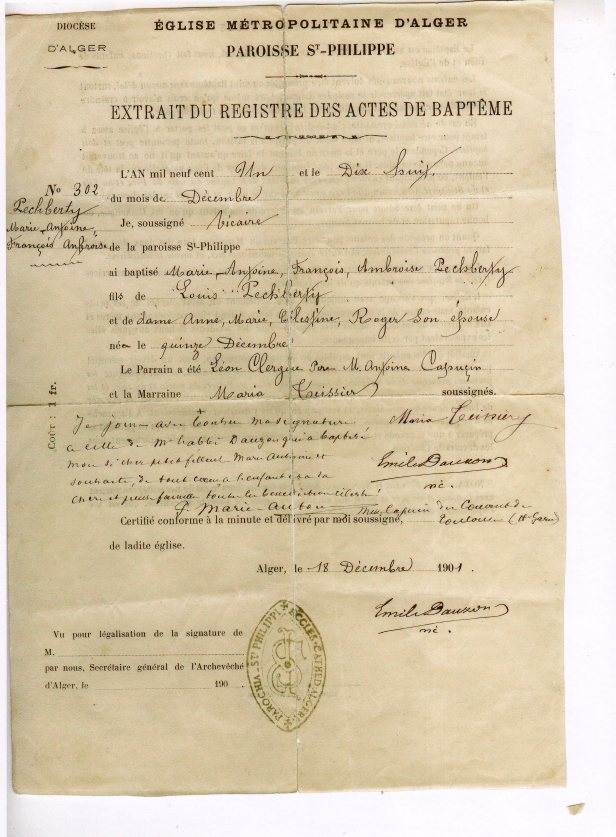 DIOCÈSE
D'ALGER
ÉGLISE MÉTROPOLITAINE D'ALGER
PAROISSE St-PHILIPPE
EXTRAIT DU REGISTRE DES ACTES DE BAPTÊME
No 302
Pechberty
Marie-Antoine
François Ambroise
L'AN mil neuf cent Un et le Dix huit
du mois de Décembre
Je, soussigné Vicaire
de la paroisse St-Philippe
ai baptisé Marie-Antoine, François, Ambroise Pechberty
fils de Louis Pechberty
et de dame Anne, Marie, Célestine, Roger son épouse
né le quinze Décembre
Le Parrain a été Léon Clergue Père M. Antoine Capucin
et la Marraine Maria Teissier soussignés.
Coût : 1 fr.
Je joins avec ma signature
à celle de Mr l'abbé Dauzon qui a baptisé
mon si cher petit filleul Marie Antoine et
souhaite, de tout coeur à l'enfant, à sa
chère et famille toute bénédiction céleste!
F. Marie-Antoine min. Capucin du Couvent de
Toulouse (Hte Garne)
Maria Teissier
Emile Dauzon
vic.
Certifié conforme à la minute et délivré par moi soussigné,
de ladite église.
Alger, le 18 Décembre 1901.
Emile Dauzon
vic.
Vu pour légalisation de la signature de
M.
par nous, Secrétaire général de l'Archevêché
d'Alger, le 190
PAROCHIA St PHILIPPI ECCLES. CATHED. ALGERI